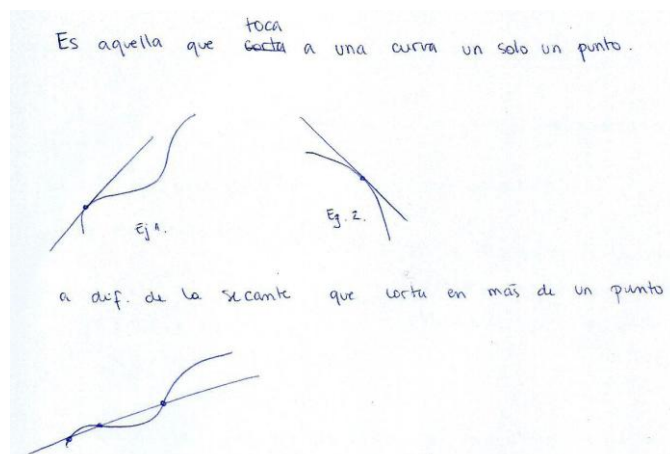 Es aquella que corta toca a una curva un solo un punto.
Ej 1.
Eg. 2.
a dif. de la secante que corta en más de un punto